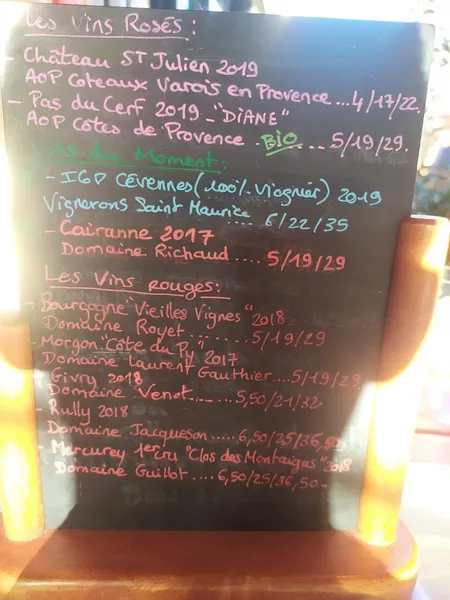 Les Vins Rosés :
- Château ST Julien 2019
AOP Coteaux Varois en Provence ...4/17/22.
- Pas du Cerf 2019 - "DIANE"
AOP Côtes de Provence BIO ... 5/19/29.
Vins du Moment :
- IGP Cévennes (100% Viognier) 2019
Vignerons Saint Maurice .... 6/22/35
- Cairanne 2017
Domaine Richaud .... 5/19/29
Les Vins rouges :
- Bourgogne "Vieilles Vignes" 2018
Domaine Royet ........ 5/19/29
- Morgon "Côte du Py" 2017
Domaine Laurent Gauthier....5/19/29
Givry 2018
Domaine Venot...... 5,50/21/32
- Rully 2018
Domaine Jacqueson ..... 6,50/25/36,50
- Mercurey 1er Cru "Clos des Montaigus" 2018
Domaine Guillot .... 6,50/25/36,50-